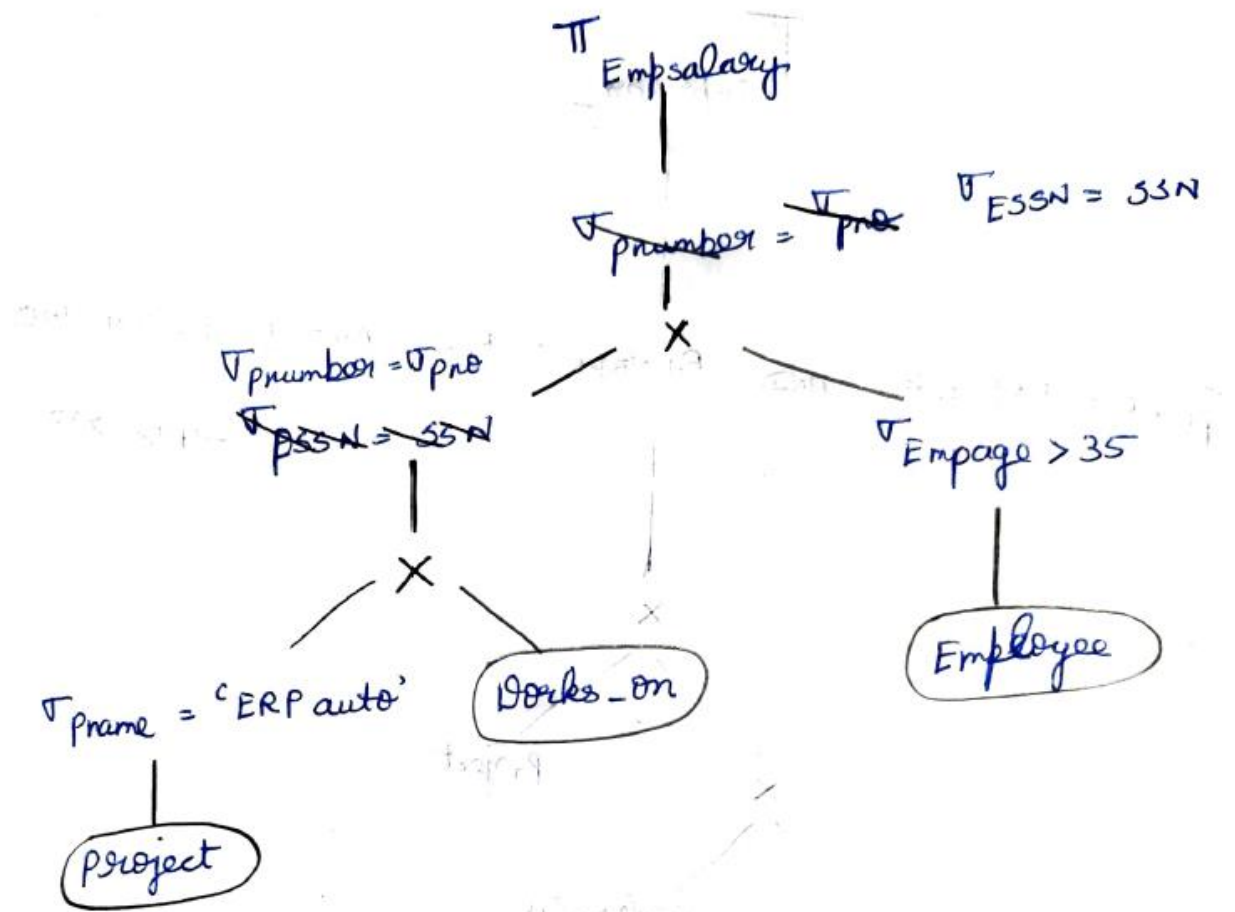 π Empsalary
σ pnumber = σ pno σ ESSN = SSN
X
σ pnumber = σ pno
σ pSSN = SSN
σ Empage > 35
X
Employee
σ pname = 'ERP auto'
Works_on
project